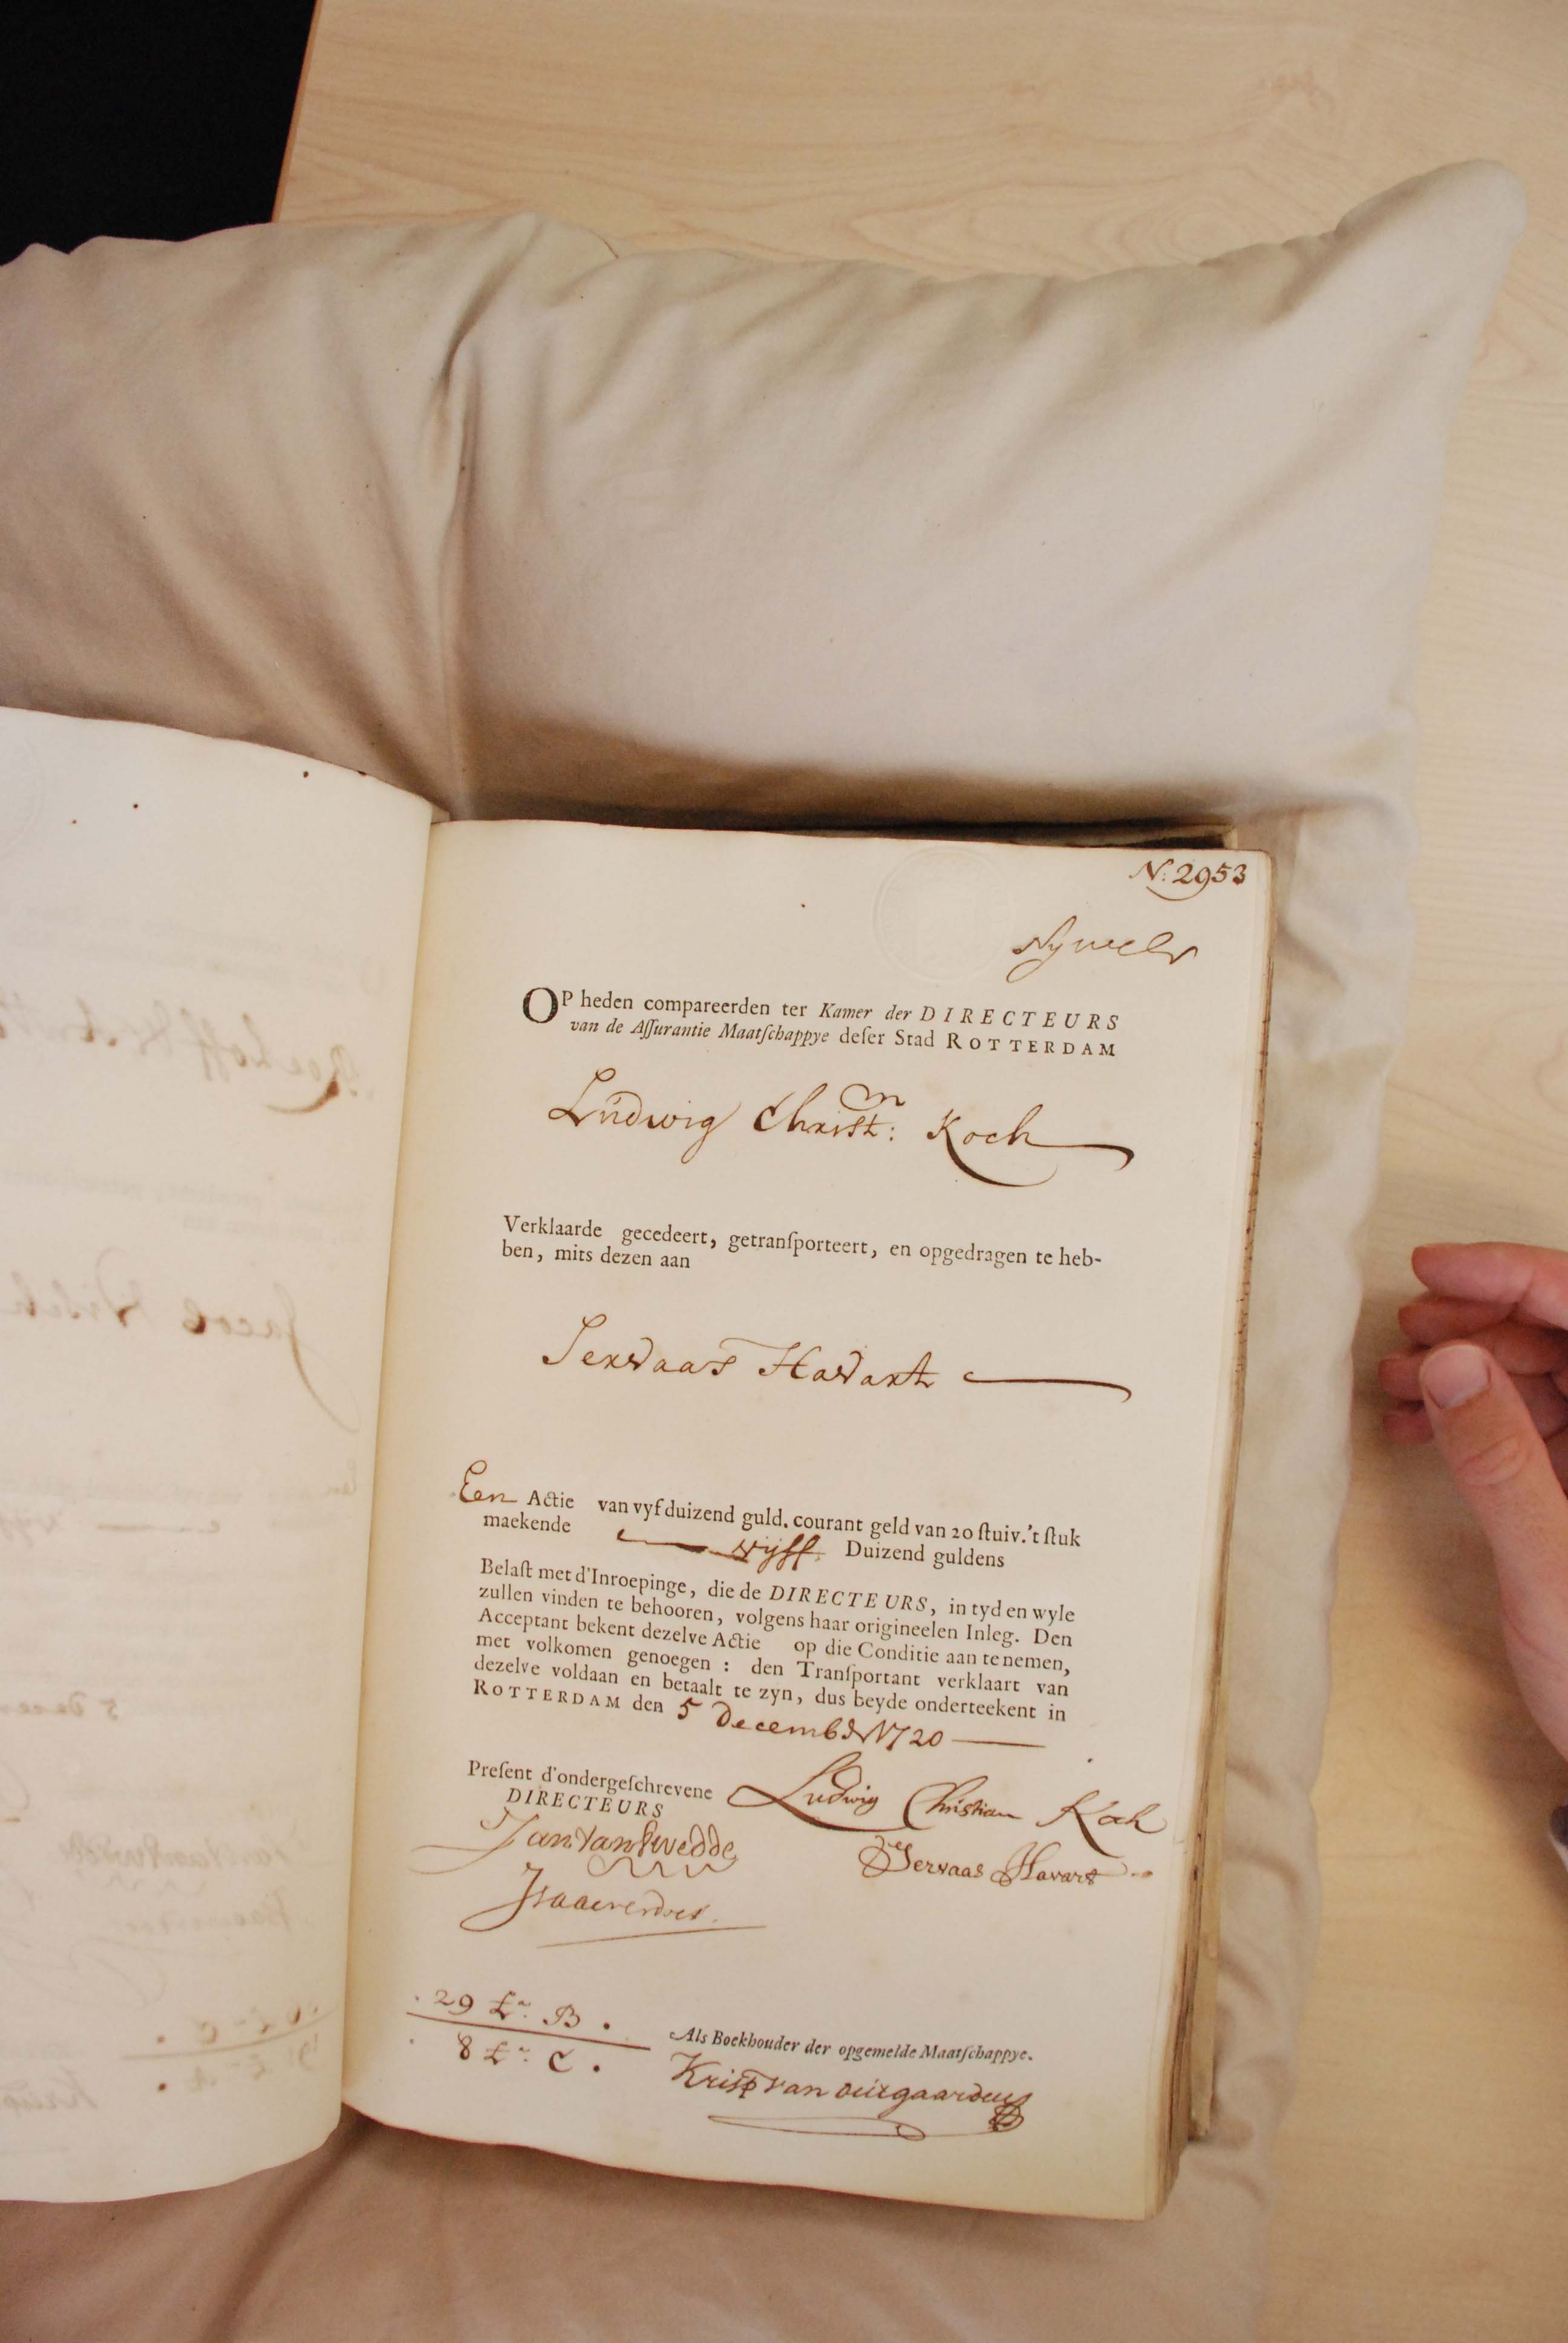 N: 2953
OP heden compareerden ter Kamer der DIRECTEURS
van de Aſſurantie Maatſchappye deſer Stad ROTTERDAM
Ludwig Christ:n Koch
Verklaarde gecedeert, getranſporteert, en opgedragen te heb-
ben, mits dezen aan
Servaas Havart
Een Actie van vyf duizend guld. courant geld van 20 ſtuiv. 't ſtuk
maekende vyff Duizend guldens
Belaſt met d'Inroepinge, die de DIRECTEURS, in tyd en wyle
zullen vinden te behooren, volgens haar origineelen Inleg. Den
Acceptant bekent dezelve Actie op die Conditie aan te nemen,
met volkomen genoegen : den Tranſportant verklaart van
dezelve voldaan en betaalt te zyn, dus beyde onderteekent in
ROTTERDAM den 5 December 1720
Preſent d'ondergeſchrevene
DIRECTEURS
Ludwig Christian Koch
Servaas Havart
29 Lª: B.
8 Lª: C.
Als Boekhouder der opgemelde Maatſchappye.